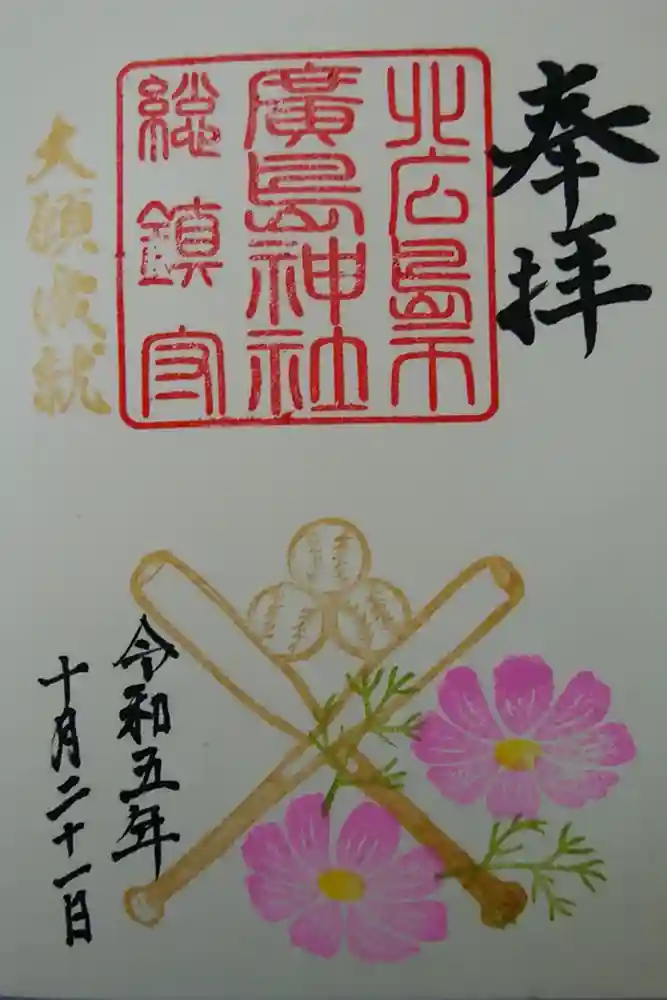 奉拝
北広島市
廣島神社
総鎮守
大願成就
令和五年
十月二十一日